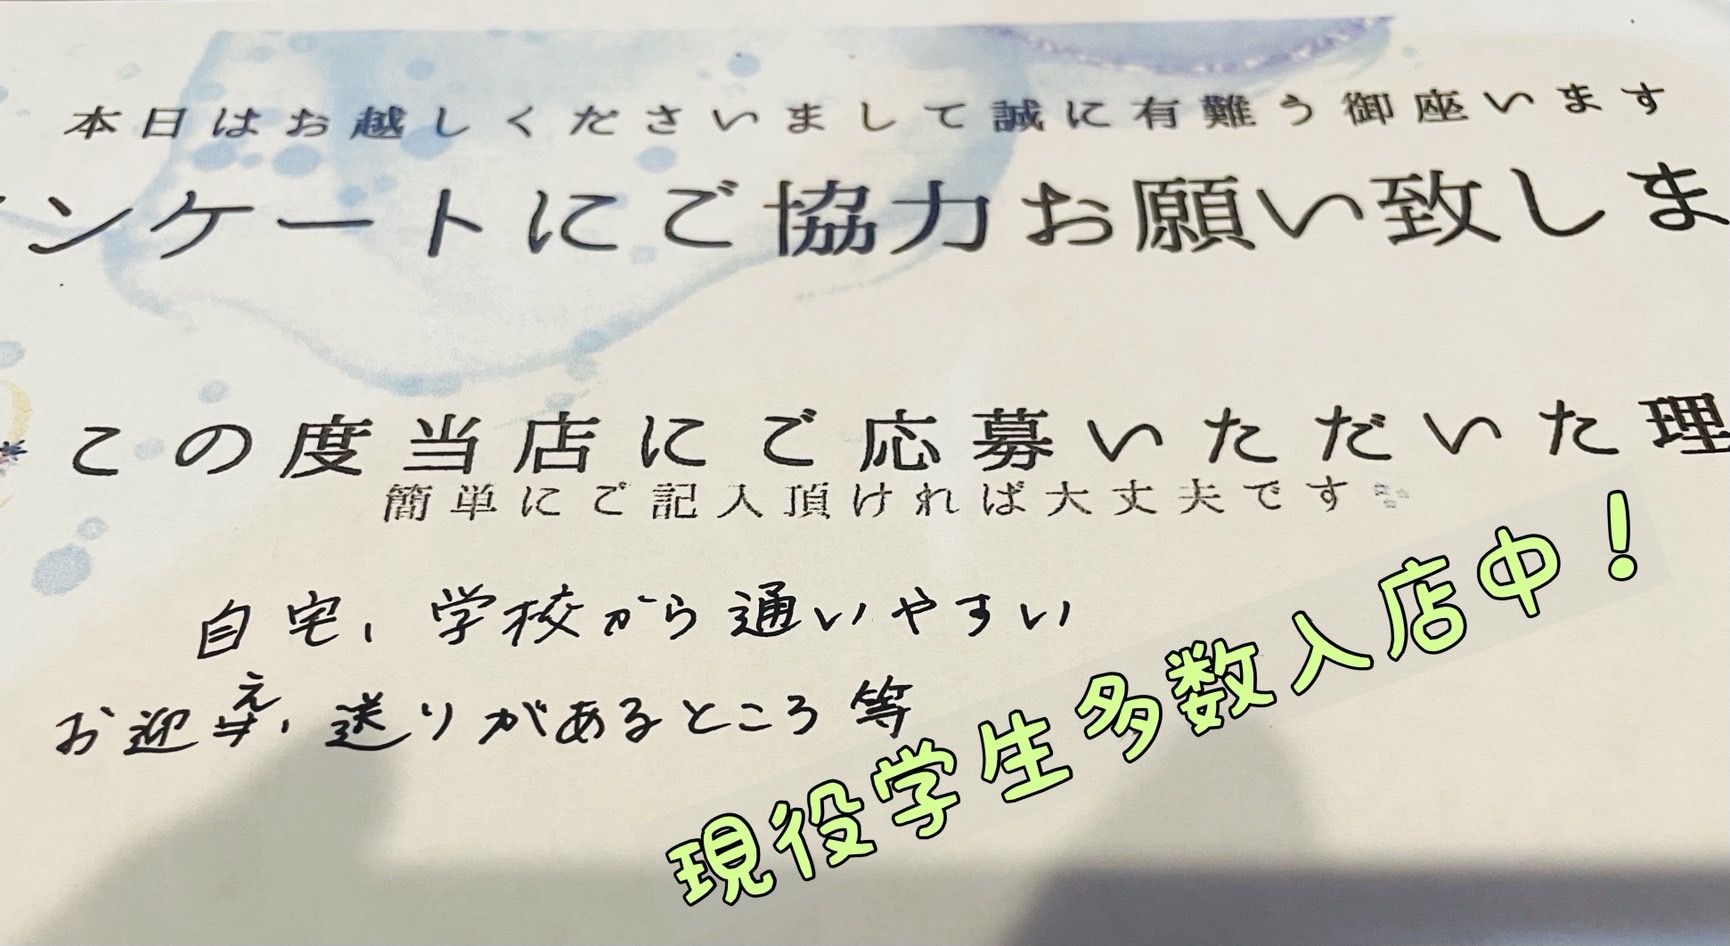 本日はお越しくださいまして誠に有難う御座います
ンケートにご協力お願い致しま
この度当店にご応募いただいた理
簡単にご記入頂ければ大丈夫です
自宅、学校から通いやすい
お迎え、送りがあるところ等
現役学生多数入店中！